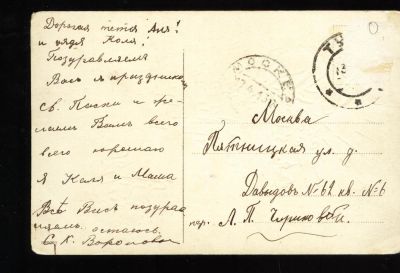 Дорогая тетя Аня!
и дядя Коля!
Поздравляем
Вас с праздником
Св. Пасхи и же-
лаем Вам всего
всего хорошаго
я Каля и Маша
Всѣ Васъ поздрав
ляемъ. остаюсь
К. Воропов
МОСКВА
ТУ
Москва
Пятницкая ул. д.
Давыдовъ № 62 кв. № 6
пер. Л. П. Чуриковой.